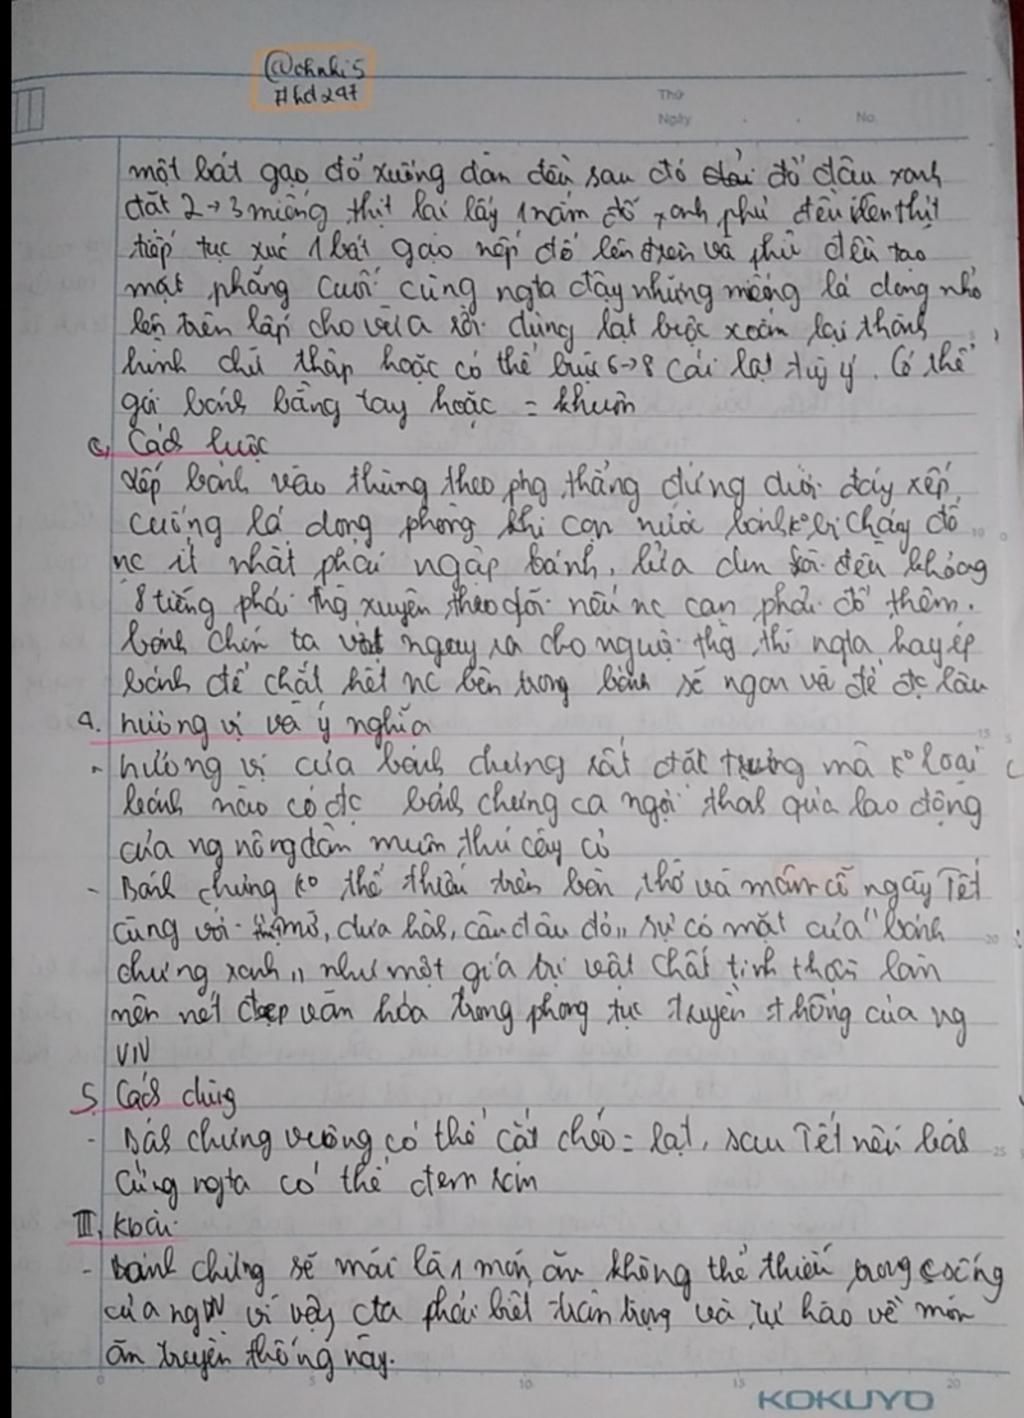 @chnhi5
#hd247
Thứ
Ngày . . No.
một bát gạo đổ xuống dàn đều sau đó đổ đậu xanh
đặt 2→3 miếng thịt lại lấy 1 nắm đỗ xanh phủ đều lên thịt
tiếp tục xúc 1 bát gạo nếp đổ lên trên và phủ đều tạo
mặt phẳng cuối cùng ngta đậy những miếng lá dong nhỏ
lên trên lấp cho vừa rồi dùng lạt buộc xoắn lại thành
hình chữ thập hoặc có thể buộc 6→8 cái lạt tùy ý. Có thể
gói bánh bằng tay hoặc = khuôn
c, Cách luộc
xếp bánh vào thùng theo phg thẳng đứng dưới đáy xếp
cuống lá dong phòng khi cạn nước bánh k° bị cháy đổ
nc ít nhất phải ngập bánh, lửa đun sôi đều khoảng
8 tiếng phải thg xuyên theo dõi nếu nc cạn phải đổ thêm.
bánh chín ta vớt ngay ra cho nguội thg thì ngta hay ép
bánh để chắt hết nc bên trong bánh sẽ ngon và để đc lâu
4. hương vị và ý nghĩa
- hương vị của bánh chưng rất đặt trưng mà k° loại
bánh nào có đc bánh chưng ca ngợi thành quả lao động
của ng nông dân muôn thú cây cỏ
- Bánh chưng k° thể thiếu trên bàn thờ và mâm cỗ ngày Tết
cùng với mỡ, dưa hành, câu đối đỏ,, sự có mặt của "bánh
chưng xanh,, như một giá trị vật chất tinh thần làm
nên nét đẹp văn hóa trong phong tục truyền thống của ng
VN
5. Cách dùng
- Bánh chưng vuông có thể cắt chéo = lạt, sau Tết nếu bánh
cứng ngta có thể đem rán
III, kbài
- bánh chưng sẽ mãi là 1 món ăn không thể thiếu trong csống
của ng VN vì vậy cta phải biết trân trọng và tự hào về món
ăn truyền thống này.
0 5 10 15 20
KOKUYO